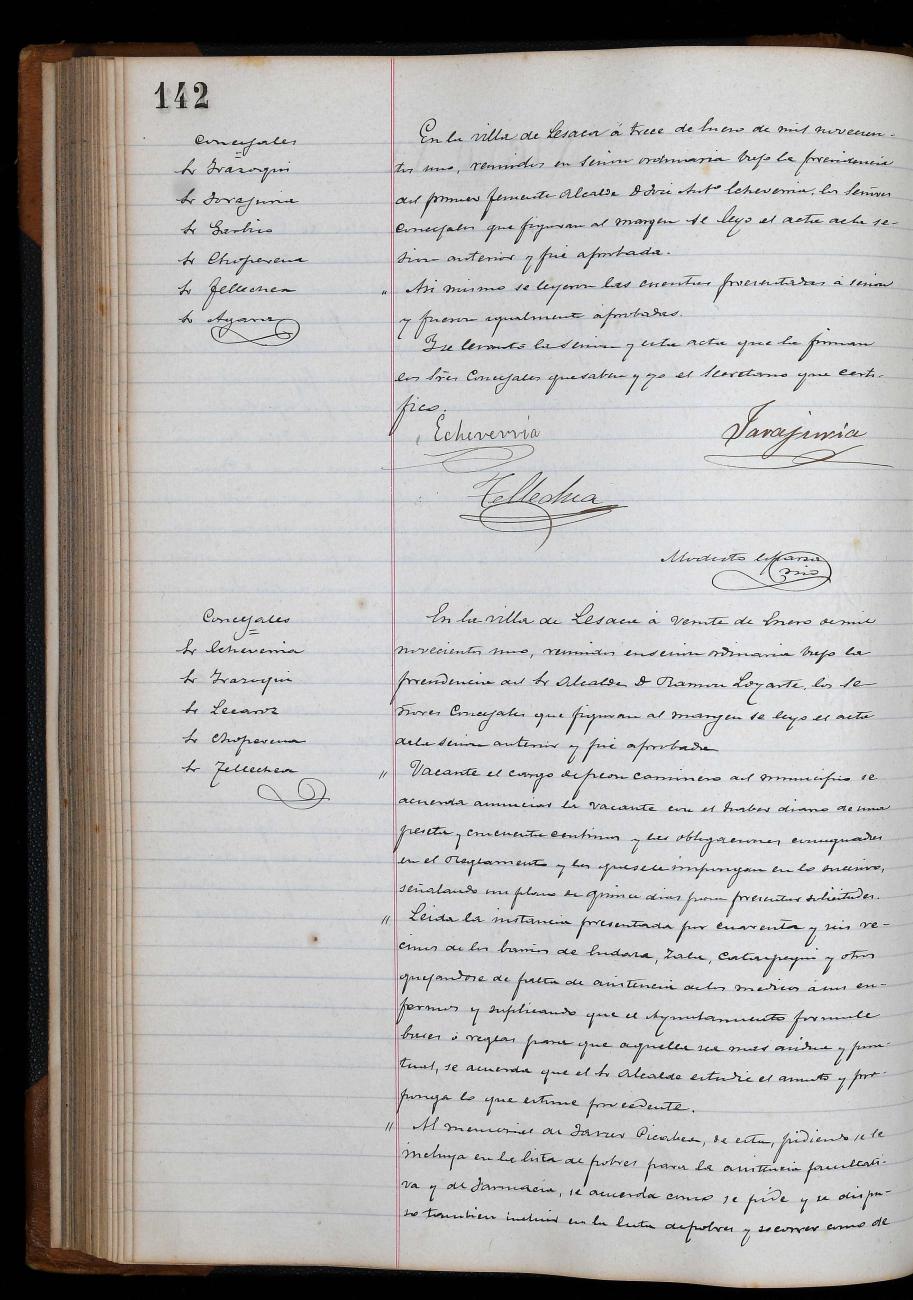 142
Concejales
Sr Irazoqui
Sr Tarajuria
Sr Garbiso
Sr Choperena
Sr Tellechea
Sr
En la villa de Lesaca á trece de Enero de mil novecien-
tos uno, reunidos en sesion ordinaria bajo la presidencia
del primer Teniente Alcalde D José Antº Echeverria, los Señores
Concejales que figuran al margen se leyo el acta dela se-
sion anterior y fué aprobada.
" Asi mismo se leyeron las cuentas presentadas á sesion
y fueron igualmente aprobadas.
Y se levantó la sesion y esta acta que la firman
los Sres Concejales que saben y yo el Secretario que certi-
fico.
Echeverria
Tarajuria
Tellechea
Modesto
srio
Concejales
Sr Echeverria
Sr Irazoqui
Sr Lecaroz
Sr Choperena
Sr Tellechea
En la villa de Lesaca á veinte de Enero de mil
novecientos uno, reunidos en sesion ordinaria bajo la
presidencia del Sr Alcalde D Ramon Loyarte, los Se-
ñores Concejales que figuran al margen se leyo el acta
dela sesion anterior y fué aprobada
" Vacante el cargo de peon caminero del municipio se
acuerda anunciar la vacante con el haber diario de una
peseta y cincuenta centimos y las obligaciones consignadas
en el Reglamento y las que se le impongan en lo sucesivo,
señalando un plazo de quince dias para presentar solicitudes.
" Leida la instancia presentada por cuarenta y seis ve-
cinos de los barrios de Endara, Zala, y otros
quejandose de falta de asistencia delos medicos á sus en-
fermos y suplicando que el Ayuntamiento formule
bases ó reglas para que aquella sea mas asidua y pun-
tual, se acuerda que el Sr Alcalde estudie el asunto y pro-
ponga lo que estime procedente.
" Al memorial de Javier Picabea, de esta, pidiendo se le
incluya en la lista de pobres para la asistencia facultati-
va y de Farmacia, se acuerda como se pide y se dispu-
so tambien incluir en la lista de pobres y socorrer como de